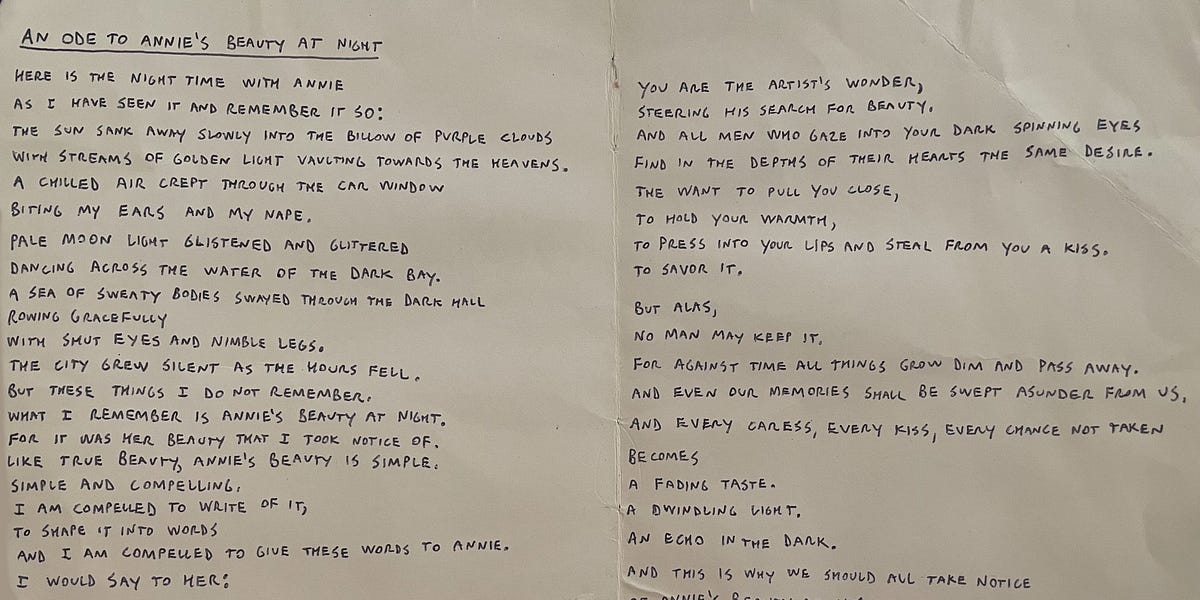 AN ODE TO ANNIE'S BEAUTY AT NIGHT
HERE IS THE NIGHT TIME WITH ANNIE
AS I HAVE SEEN IT AND REMEMBER IT SO:
THE SUN SANK AWAY SLOWLY INTO THE BILLOW OF PURPLE CLOUDS
WITH STREAMS OF GOLDEN LIGHT VAULTING TOWARDS THE HEAVENS.
A CHILLED AIR CREPT THROUGH THE CAR WINDOW
BITING MY EARS AND MY NAPE.
PALE MOON LIGHT GLISTENED AND GLITTERED
DANCING ACROSS THE WATER OF THE DARK BAY.
A SEA OF SWEATY BODIES SWAYED THROUGH THE DARK HALL
ROWING GRACEFULLY
WITH SHUT EYES AND NIMBLE LEGS.
THE CITY GREW SILENT AS THE HOURS FELL.
BUT THESE THINGS I DO NOT REMEMBER.
WHAT I REMEMBER IS ANNIE'S BEAUTY AT NIGHT.
FOR IT WAS HER BEAUTY THAT I TOOK NOTICE OF.
LIKE TRUE BEAUTY, ANNIE'S BEAUTY IS SIMPLE.
SIMPLE AND COMPELLING.
I AM COMPELLED TO WRITE OF IT,
TO SHAPE IT INTO WORDS
AND I AM COMPELLED TO GIVE THESE WORDS TO ANNIE.
I WOULD SAY TO HER:
YOU ARE THE ARTIST'S WONDER,
STEERING HIS SEARCH FOR BEAUTY.
AND ALL MEN WHO GAZE INTO YOUR DARK SPINNING EYES
FIND IN THE DEPTHS OF THEIR HEARTS THE SAME DESIRE.
THE WANT TO PULL YOU CLOSE,
TO HOLD YOUR WARMTH,
TO PRESS INTO YOUR LIPS AND STEAL FROM YOU A KISS.
TO SAVOR IT.
BUT ALAS,
NO MAN MAY KEEP IT.
FOR AGAINST TIME ALL THINGS GROW DIM AND PASS AWAY.
AND EVEN OUR MEMORIES SHALL BE SWEPT ASUNDER FROM US,
AND EVERY CARESS, EVERY KISS, EVERY CHANCE NOT TAKEN
BECOMES
A FADING TASTE.
A DWINDLING LIGHT.
AN ECHO IN THE DARK.
AND THIS IS WHY WE SHOULD ALL TAKE NOTICE
OF ANNIE'S